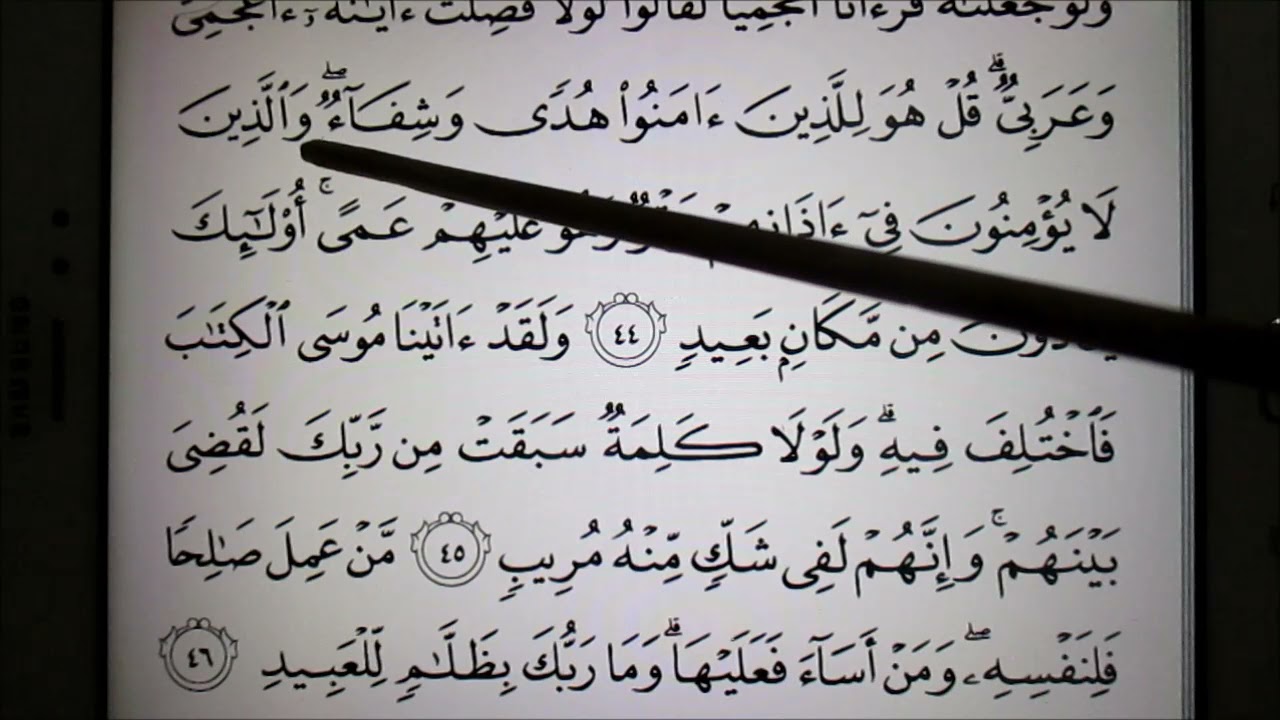 وَلَوْ جَعَلْنَٰهُ قُرْءَانًا أَعْجَمِيًّا لَّقَالُوا۟ لَوْلَا فُصِّلَتْ ءَايَٰتُهُۥٓ ءَا۬عْجَمِىٌّ
وَعَرَبِىٌّ ۗ قُلْ هُوَ لِلَّذِينَ ءَامَنُوا۟ هُدًى وَشِفَآءٌ ۖ وَٱلَّذِينَ
لَا يُؤْمِنُونَ فِىٓ ءَاذَانِهِمْ عَلَيْهِمْ عَمًى ۚ أُو۟لَٰٓئِكَ
مِن مَّكَانٍۭ بَعِيدٍ ٤٤ وَلَقَدْ ءَاتَيْنَا مُوسَى ٱلْكِتَٰبَ
فَٱخْتُلِفَ فِيهِ ۗ وَلَوْلَا كَلِمَةٌ سَبَقَتْ مِن رَّبِّكَ لَقُضِىَ
بَيْنَهُمْ ۚ وَإِنَّهُمْ لَفِى شَكٍّ مِّنْهُ مُرِيبٍ ٤٥ مَّنْ عَمِلَ صَٰلِحًا
فَلِنَفْسِهِۦ ۖ وَمَنْ أَسَآءَ فَعَلَيْهَا ۗ وَمَا رَبُّكَ بِظَلَّٰمٍ لِّلْعَبِيدِ ٤٦